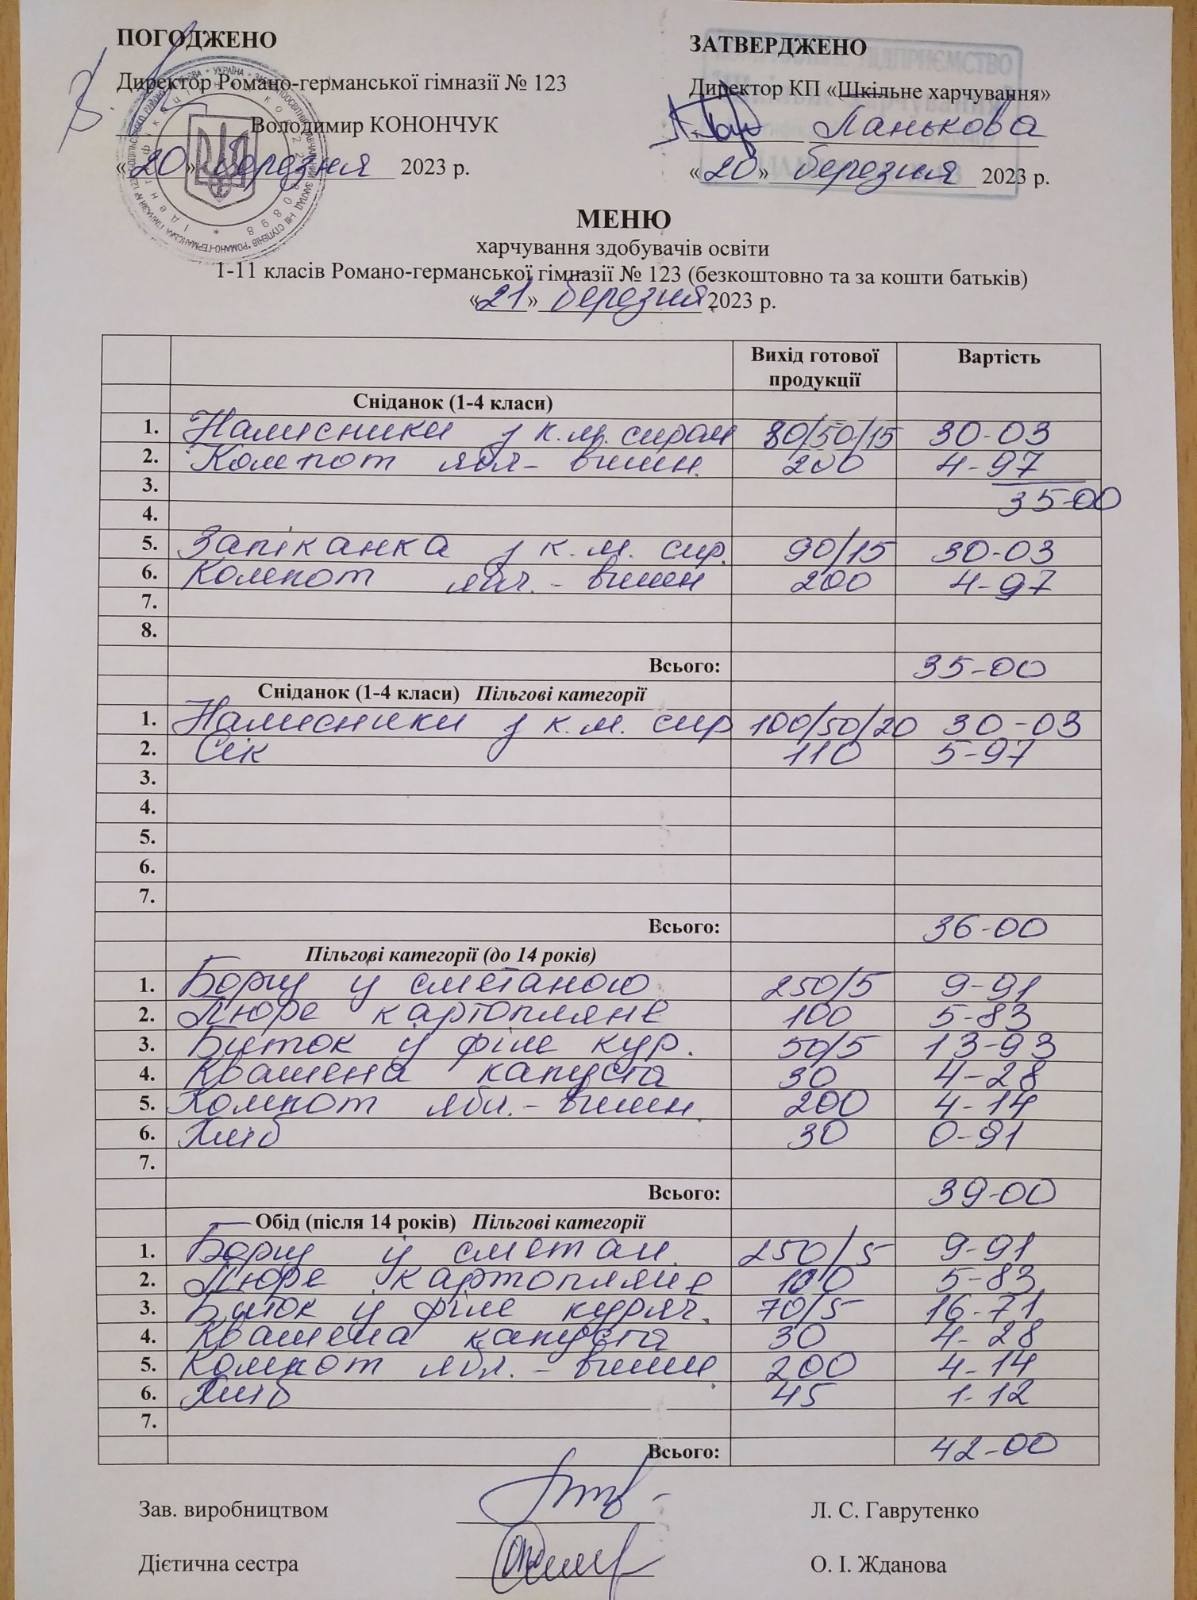 ПОГОДЖЕНО
Директор Романо-германської гімназії № 123
Володимир КОНОНЧУК
«20» березня 2023 р.
ЗАТВЕРДЖЕНО
Директор КП «Шкільне харчування»
Панькова
«20» березня 2023 р.
МЕНЮ
харчування здобувачів освіти
1-11 класів Романо-германської гімназії № 123 (безкоштовно та за кошти батьків)
«21» березня 2023 р.
Вихід готової продукції Вартість
Сніданок (1-4 класи)
1. Налисники з к.м. сиром 80/50/15 30-03
2. Компот ябл- вишн. 200 4-97
3. 35-00
4.
5. Запіканка з к.м. сир. 90/15 30-03
6. Компот ябл.- вишн 200 4-97
7.
8.
Всього: 35-00
Сніданок (1-4 класи) Пільгові категорії
1. Налисники з к.м. сир 100/50/20 30-03
2. Сік 110 5-97
3.
4.
5.
6.
7.
Всього: 36-00
Пільгові категорії (до 14 років)
1. Борщ зі сметаною 250/5 9-91
2. Пюре картопляне 100 5-83
3. Биток із філе кур. 50/5 13-93
4. Квашена капуста 30 4-28
5. Компот ябл.- вишн. 200 4-14
6. Хліб 30 0-91
7.
Всього: 39-00
Обід (після 14 років) Пільгові категорії
1. Борщ зі сметан. 250/5 9-91
2. Пюре картопляне 100 5-83
3. Биток із філе куряч. 70/5 16-71
4. Квашена капуста 30 4-28
5. Компот ябл.- вишн. 200 4-14
6. Хліб 45 1-12
7.
Всього: 42-00
Зав. виробництвом Л. С. Гаврутенко
Дієтична сестра О. І. Жданова